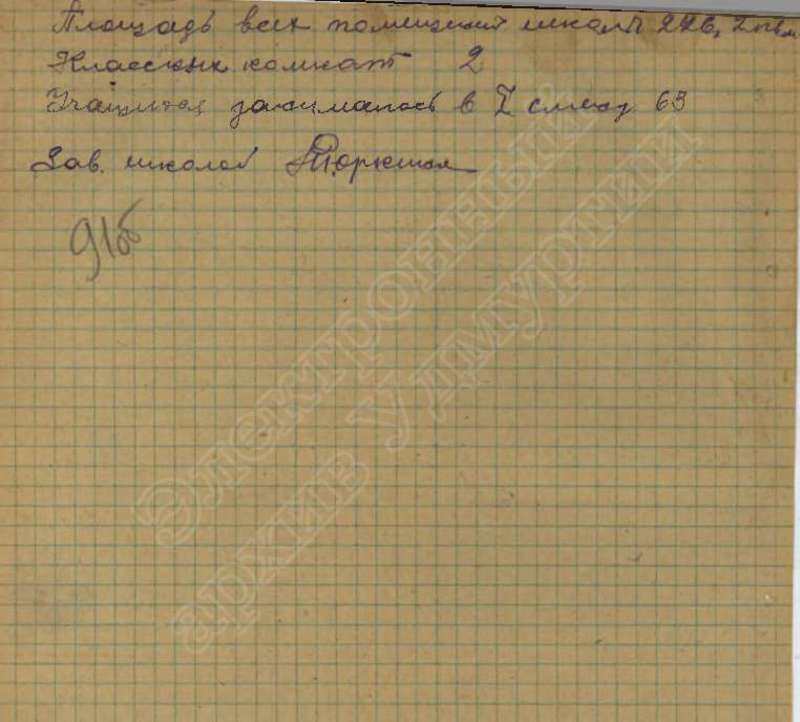 Площадь всех помещений школы 276,2 кв м
Классных комнат 2
Учащихся занималось в I смену 63
Зав. школой
91об
Электронный
архив Удмуртии